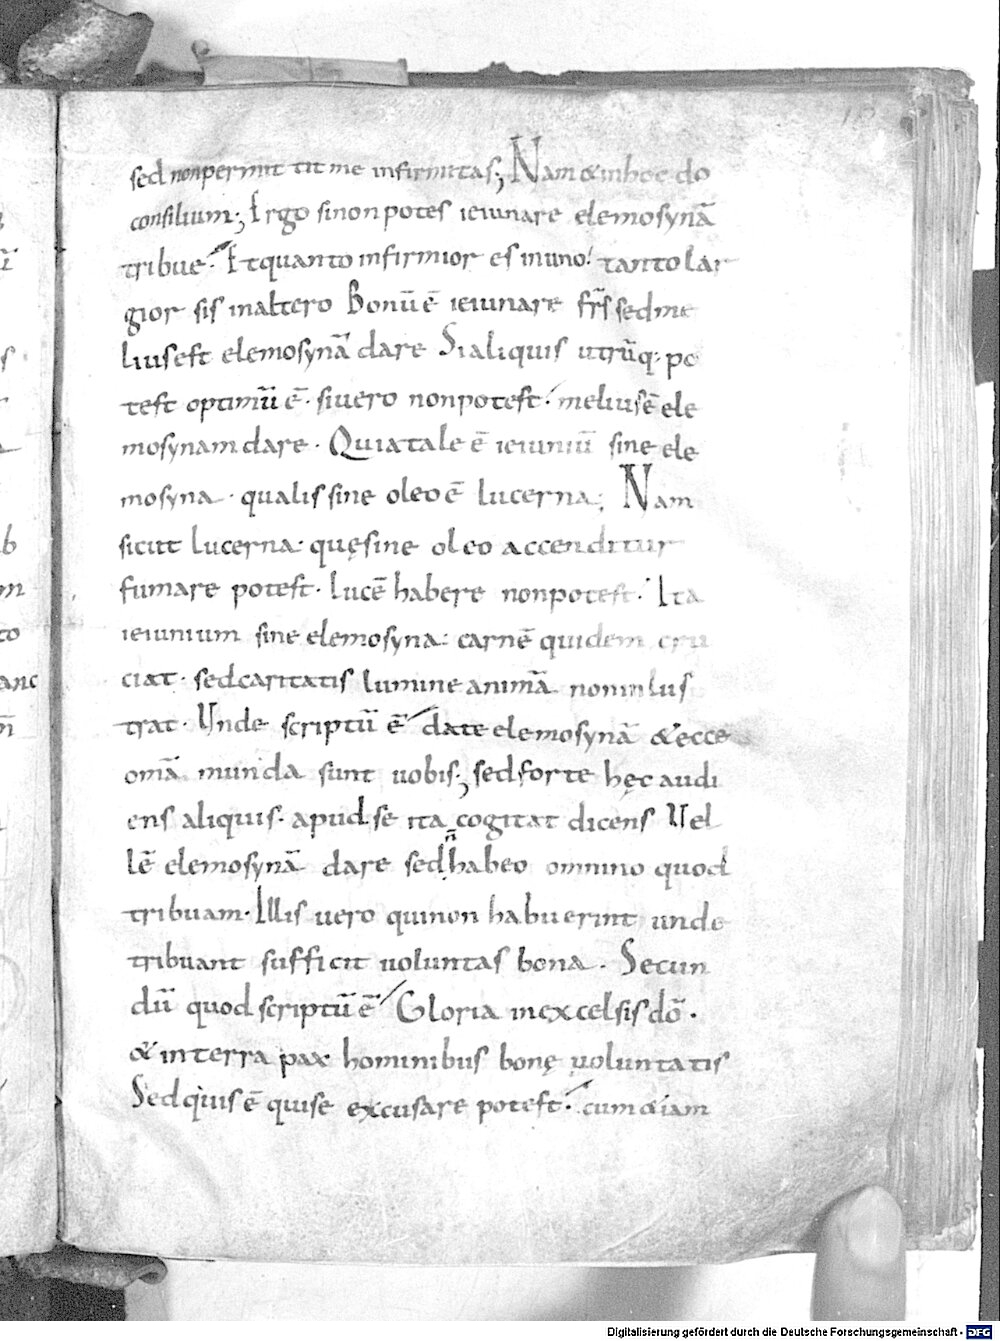 18
sed non permittit me infirmitas; Nam & in hoc do
consilium; Ergo si non potes ieiunare elemosynā
tribue. Et quanto infirmior es in uno! tanto lar
gior sis in altero Bonū ē ieiunare frs̄ sed me
lius est elemosynā dare Si aliquis utrūq; po
test optimū ē. si uero non potest. melius ē ele
mosynam dare. Quia tale ē ieiuniū sine ele
mosyna. qualis sine oleo ē lucerna; Nam
sicut lucerna. quę sine oleo accenditur
fumare potest. lucē habere non potest. Ita
ieiunium sine elemosyna. carnē quidem cru
ciat. sed caritatis lumine animā non inlus
trat. Unde scriptū ē date elemosynā & ecce
omā munda sunt uobis; sed forte hęc audi
ens aliquis. apud se ita cogitat dicens Uel
lē elemosynā dare sed n̄ habeo omnino quod
tribuam. Illis uero qui non habuerint unde
tribuant sufficit uoluntas bona. Secun
dū quod scriptū ē Gloria in excelsis dō.
& in terra pax hominibus bonę uoluntatis
Sed quis ē qui se excusare potest. cum & iam
Digitalisierung gefördert durch die Deutsche Forschungsgemeinschaft - DFG